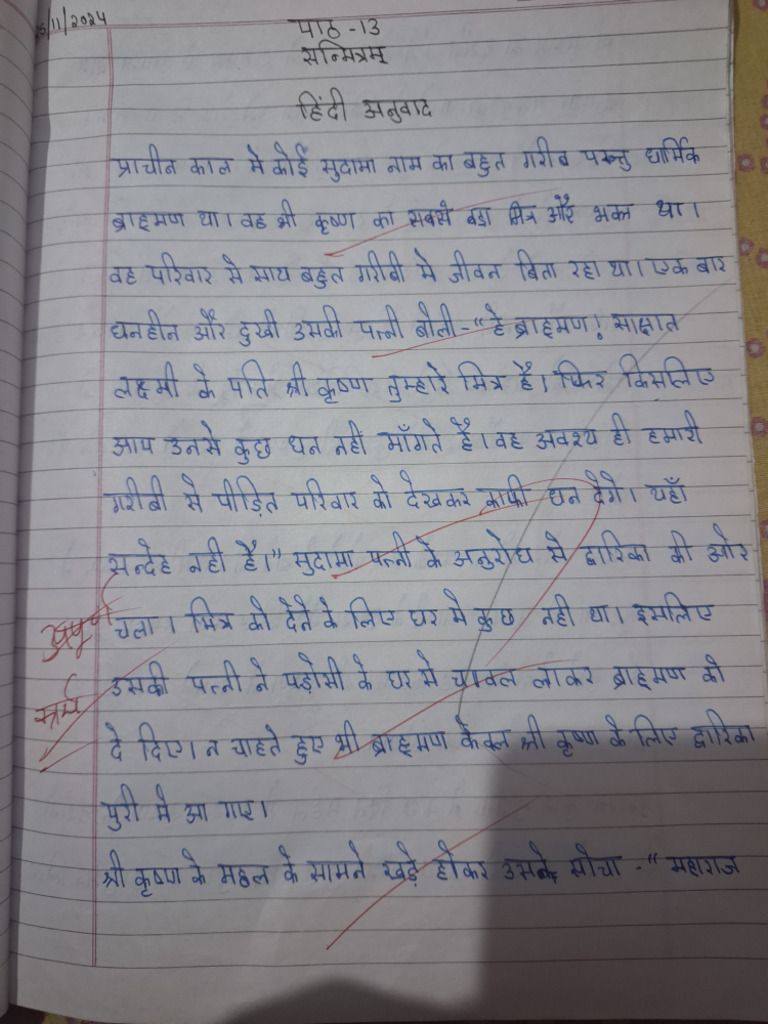 5/11/2024
पाठ -13
सन्मित्रम्
हिंदी अनुवाद
प्राचीन काल मे कोई सुदामा नाम का बहुत गरीब परन्तु धार्मिक
ब्राह्मण था। वह श्री कृष्ण का सबसे बड़ा मित्र और भक्त था।
वह परिवार मे साथ बहुत गरीबी मे जीवन बिता रहा था। एक बार
धनहीन और दुखी उसकी पत्नी बोली-“हे ब्राह्मण! साक्षात
लक्ष्मी के पति श्री कृष्ण तुम्हारे मित्र है। फिर किसलिए
आप उनसे कुछ धन नहीं माँगते है। वह अवश्य ही हमारी
गरीबी से पीड़ित परिवार को देखकर काफी धन देंगे। यहाँ
सन्देह नही है।” सुदामा पत्नी के अनुरोध से द्वारिका की ओर
चला। मित्र को देने के लिए घर मे कुछ नही था। इसलिए
उसकी पत्नी ने पड़ोसी के घर से चावल लाकर ब्राह्मण को
दे दिए। न चाहते हुए भी ब्राह्मण केवल श्री कृष्ण के लिए द्वारिका
पुरी मे आ गए।
श्री कृष्ण के महल के सामने खड़े होकर उसके सोचा -“ महाराज
अपूर्ण